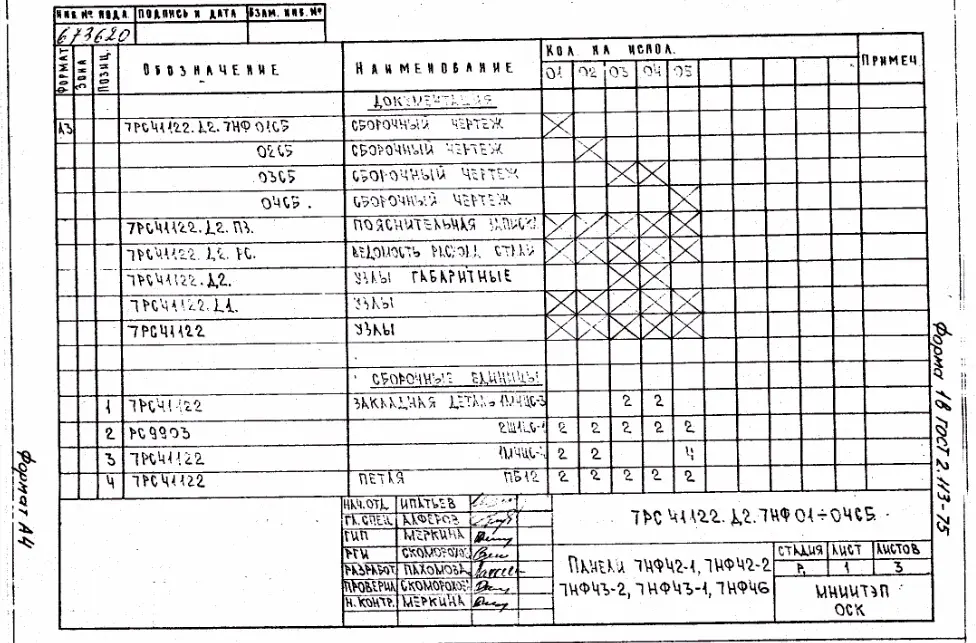 ИНВ. № ПОДЛ. ПОДПИСЬ И ДАТА ВЗАМ. ИНВ. №
673620
ФОРМАТ ЗОНА ПОЗИЦ. ОБОЗНАЧЕНИЕ НАИМЕНОВАНИЕ КОЛ. НА ИСПОЛ. ПРИМЕЧ
01 02 03 04 05
ДОКУМЕНТАЦИЯ
А3 7РС41122.Д2.7НФ01СБ СБОРОЧНЫЙ ЧЕРТЕЖ
02СБ СБОРОЧНЫЙ ЧЕРТЕЖ
03СБ СБОРОЧНЫЙ ЧЕРТЕЖ
04СБ. СБОРОЧНЫЙ ЧЕРТЕЖ
7РС41122.Д2.ПЗ. ПОЯСНИТЕЛЬНАЯ ЗАПИСКА
7РС41122.Д2.РС. ВЕДОМОСТЬ РАСХОДА СТАЛИ
7РС41122.Д2. УЗЛЫ ГАБАРИТНЫЕ
7РС41122.Д1. УЗЛЫ
7РС41122 УЗЛЫ
СБОРОЧНЫЕ ЕДИНИЦЫ
1 7РС41122 ЗАКЛАДНАЯ ДЕТАЛЬ 2 2
2 РС9903 2 2 2 2 2
3 7РС41122 2 2 4
4 7РС41122 ПЕТЛЯ ПБ12 2 2 2 2 2
НАЧ.ОТД. ИПАТЬЕВ
ГЛ.СПЕЦ. АЛФЕРОВ
ГИП МЕРКИНА
РГИ СКОМОРОХОВ
РАЗРАБОТ. ПАХОМОВА
ПРОВЕРИЛ СКОМОРОХОВ
Н.КОНТР. МЕРКИНА
7РС41122.Д2.7НФ01÷04СБ.
ПАНЕЛИ 7НФ42-1, 7НФ42-2
7НФ43-2, 7НФ43-1, 7НФ46
СТАДИЯ ЛИСТ ЛИСТОВ
Р. 1 3
МНИИТЭП
ОСК
Форма 18 ГОСТ 2.113-75
Формат А4